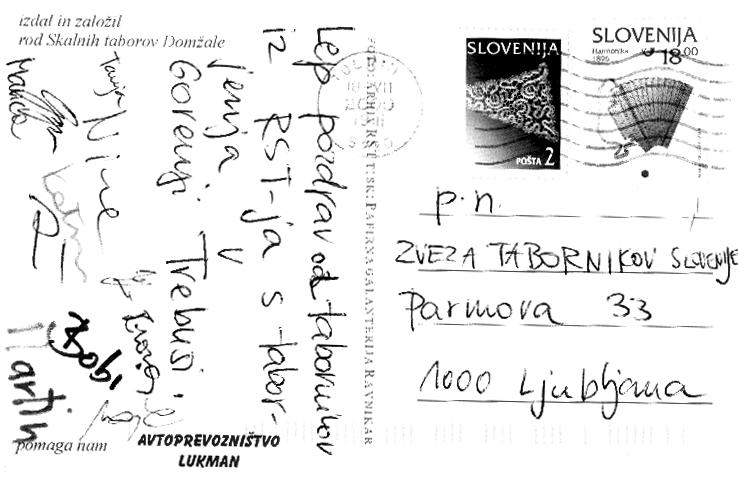 izdal in založil
rod Skalnih taborov Domžale
Lep pozdrav od tabornikov
iz RST-ja s tabor-
jenja v
Gorenji Trebuši.
Tanja
Nine
Manca
Katra
Bobi
Martin
pomaga nam
AVTOPREVOZNIŠTVO
LUKMAN
FOTO: ARHIV RST TISK: PAPIRNA GALANTERIJA RAVNIKAR
SLOVENIJA
POŠTA 2
SLOVENIJA
Harmonika
1896
18.00
p.n.
ZVEZA TABORNIKOV SLOVENIJE
Parmova 33
1000 Ljubljana